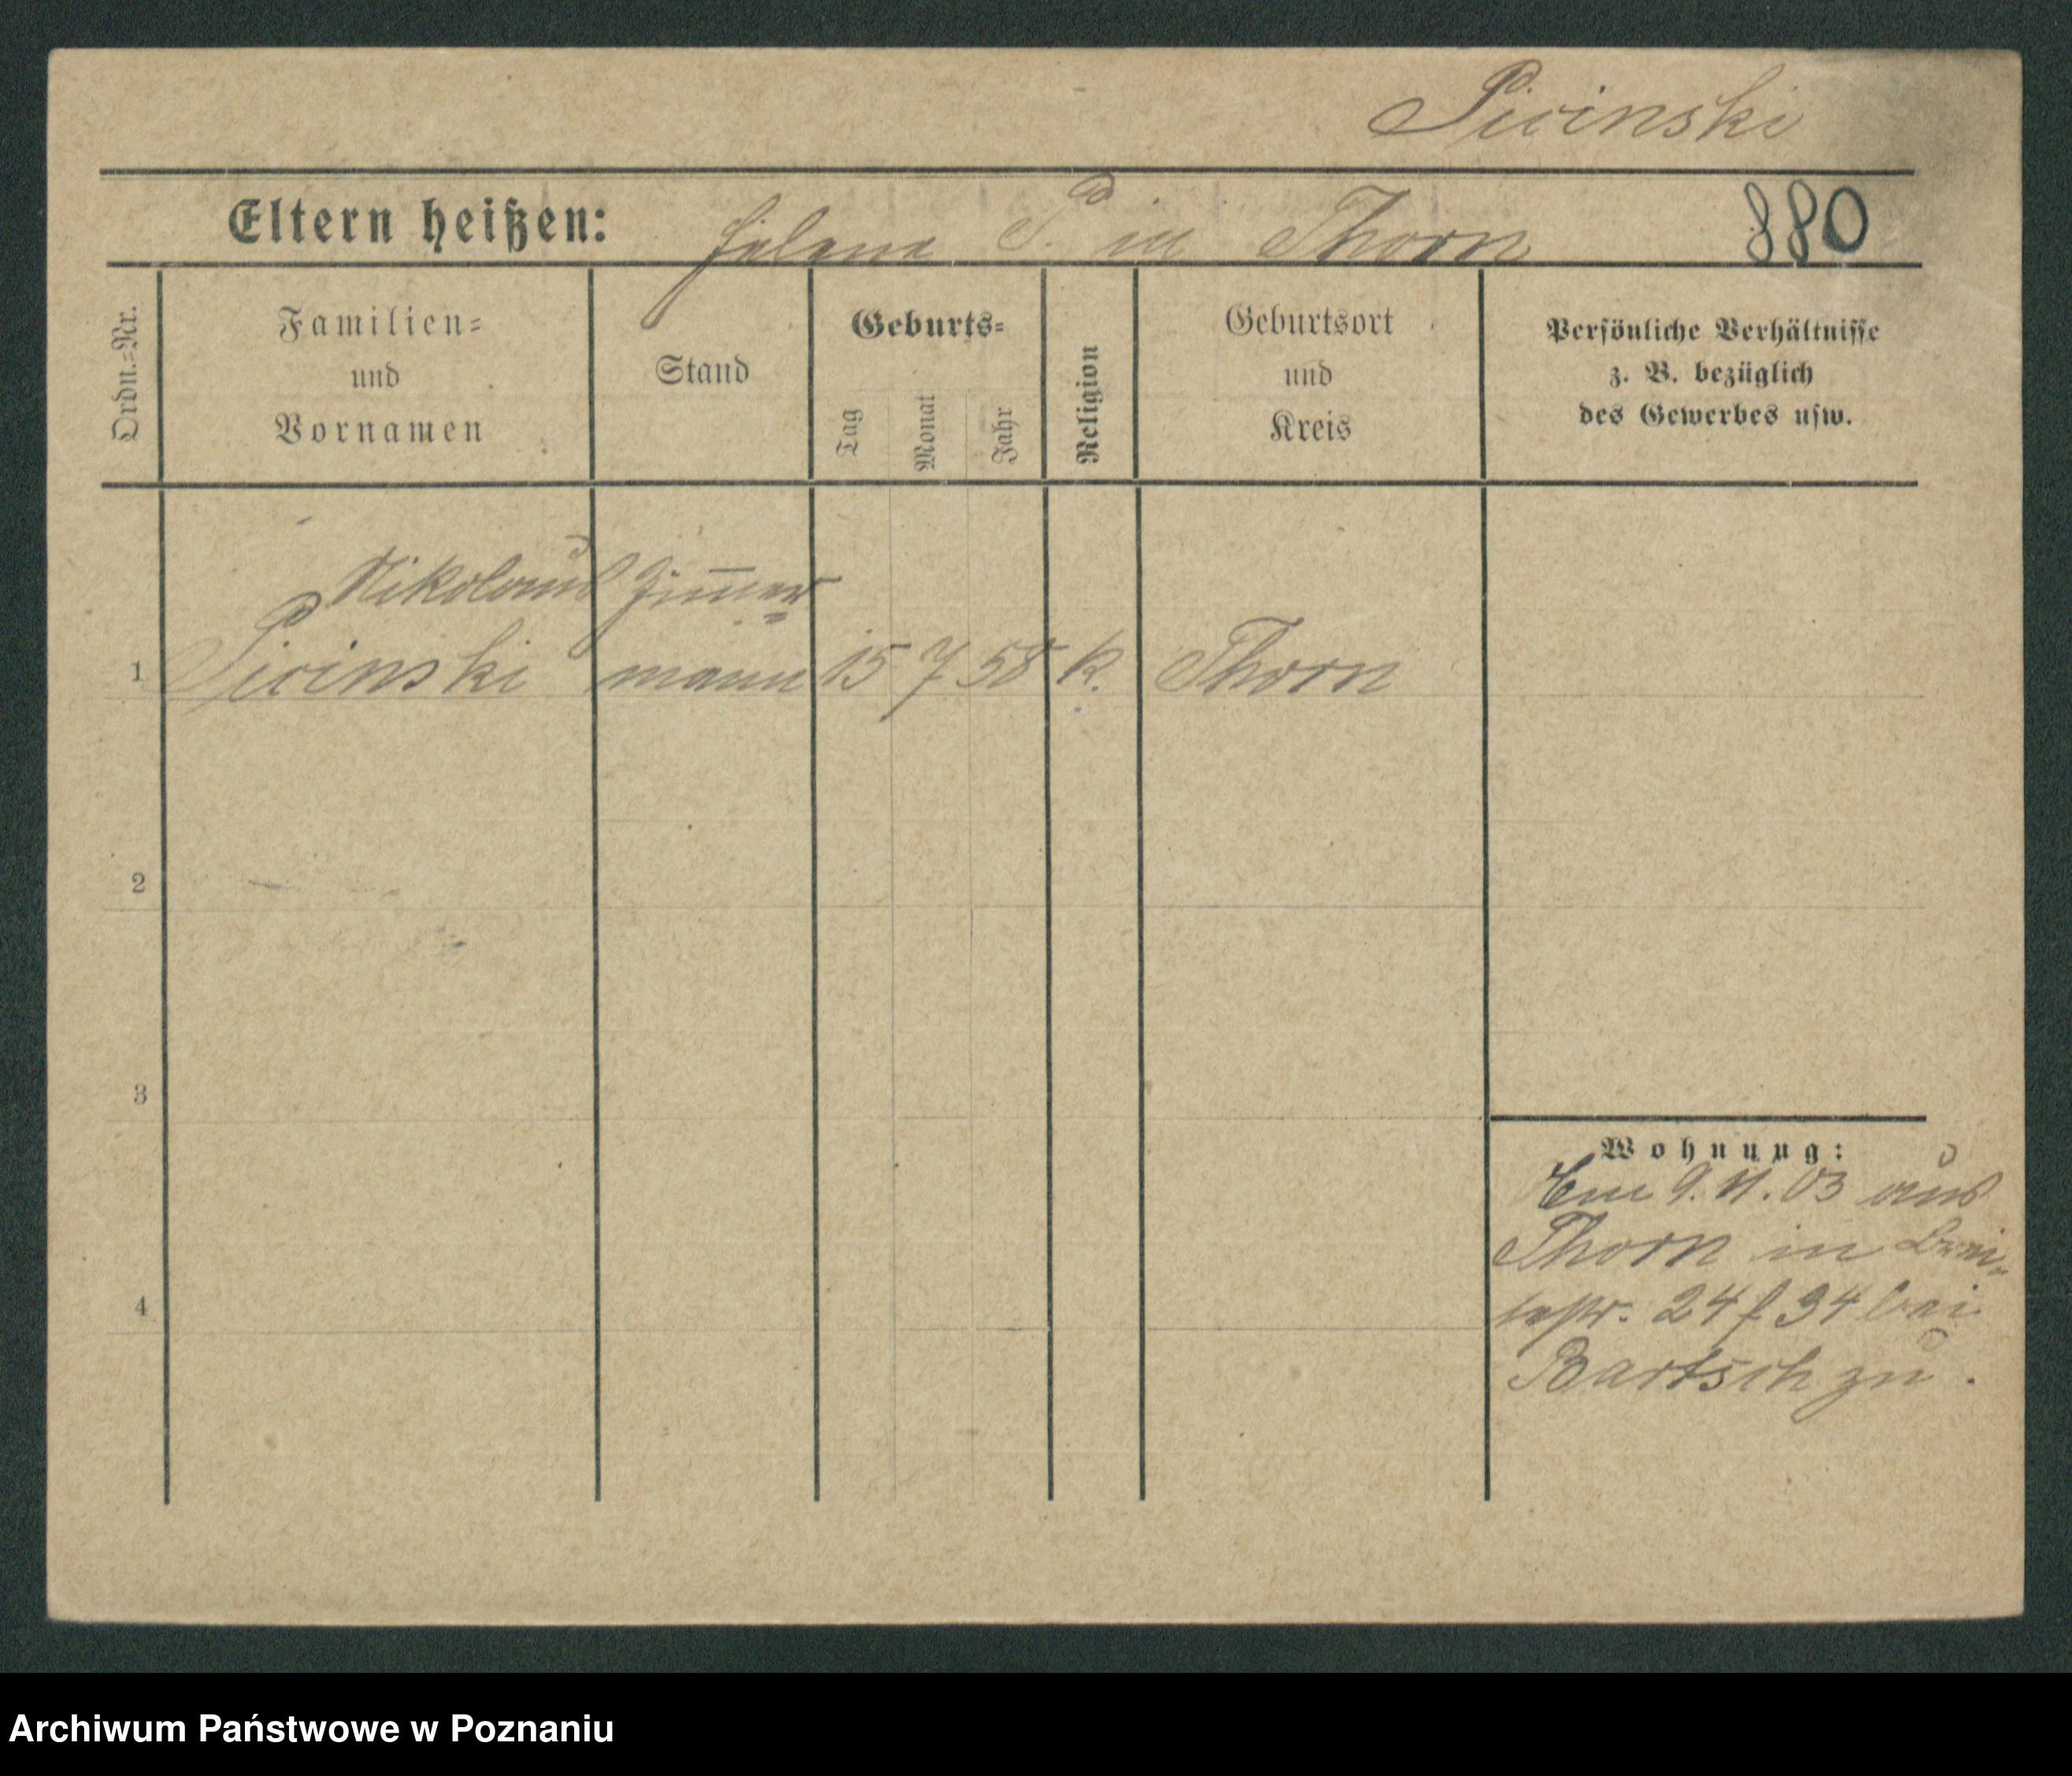 Piwinski
Eltern heißen: Helene P. in Thorn 880
Ordn.=Nr.
Familien=
und
Vornamen
Stand
Geburts=
Tag
Monat
Jahr
Religion
Geburtsort
und
Kreis
Persönliche Verhältnisse
z. B. bezüglich
des Gewerbes usw.
Nikolaus Zim̅er=
1 Piwinski mann 15 7 58 k. Thorn
2
3
4
Wohnung:
Am 9. 11. 03 aus
Thorn in
24 34 bei
Bartsch zu.
Archiwum Państwowe w Poznaniu